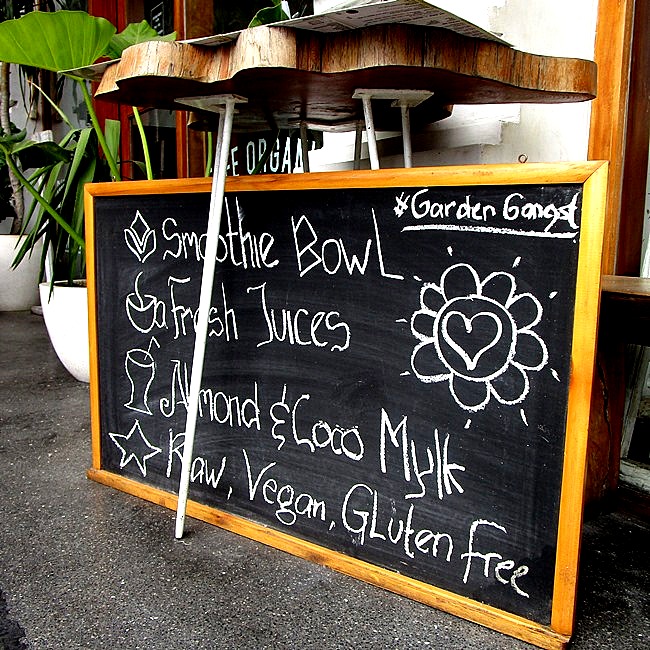 #Garden Gangst
Smoothie BowL
Fresh Juices
Almond & Coco Mylk
Raw, Vegan, GLuten free